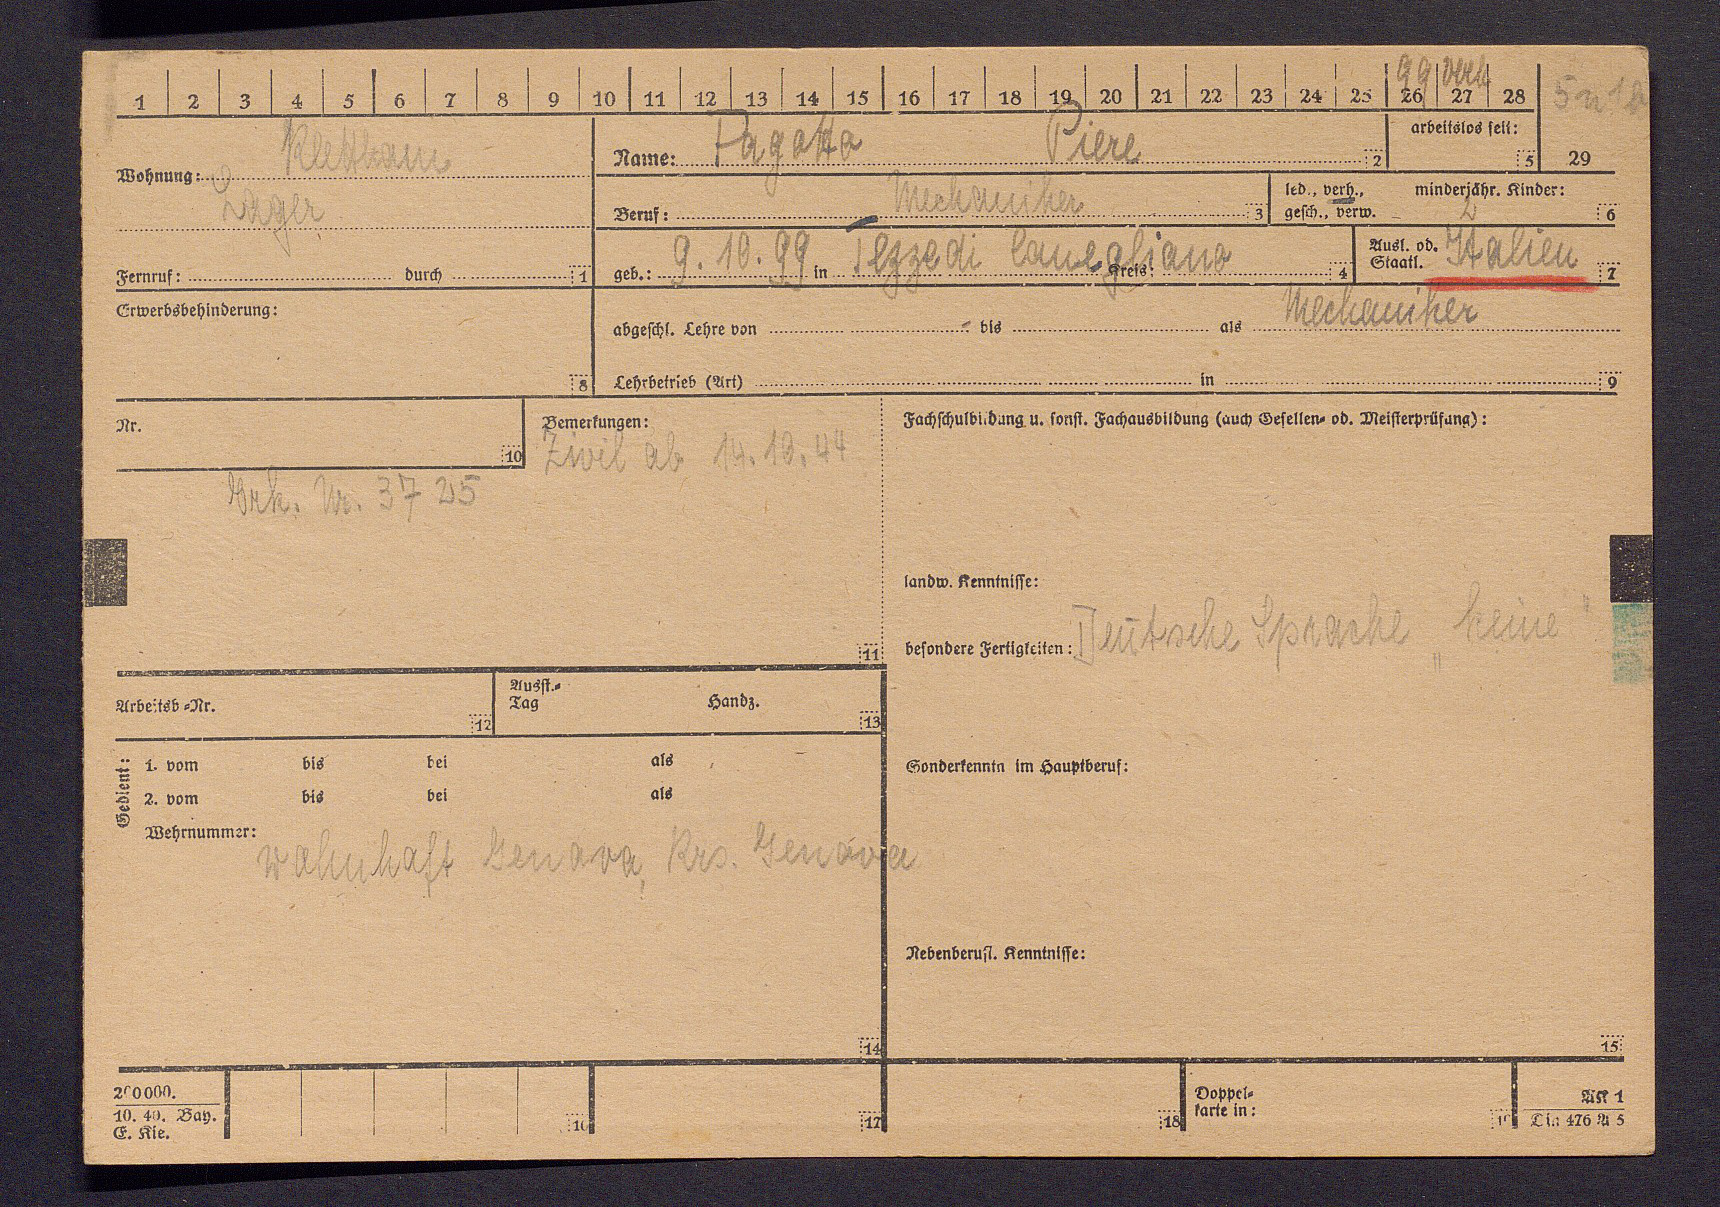 99 verh
1 2 3 4 5 6 7 8 9 10 11 12 13 14 15 16 17 18 19 20 21 22 23 24 25 26 27 28
Wohnung: Klettham
Lager
Fernruf: durch 1
Name: Pagotto Piere 2
arbeitslos seit: 5
29
Beruf: Mechaniker 3
led., verh., gesch., verw. minderjähr. Kinder: 2 6
geb.: 9.10.99 in Tezzedi Conegliano Kreis: 4
Ausl. od. Staatl. Italien 7
Erwerbsbehinderung: 8
abgeschl. Lehre von - bis als Mechaniker
Lehrbetrieb (Art) in 9
Nr. 10
Bemerkungen:
Zivil ab 14.10.44
Grk. Nr. 37 25
11
Fachschulbildung u. sonst. Fachausbildung (auch Gesellen- od. Meisterprüfung):
landw. Kenntnisse:
besondere Fertigkeiten: Deutsche Sprache „keine"
Arbeitsb.-Nr. 12
Ausst.-Tag Handz. 13
Gedient:
1. vom bis bei als
2. vom bis bei als
Wehrnummer:
wohnhaft Genova, Krs. Genova
14
Sonderkenntn im Hauptberuf:
Nebenberufl. Kenntnisse:
15
200000.
10. 40. Bay.
E. Kie.
16
17
18
Doppel-
karte in:
19
AK 1
Din 476 A 5